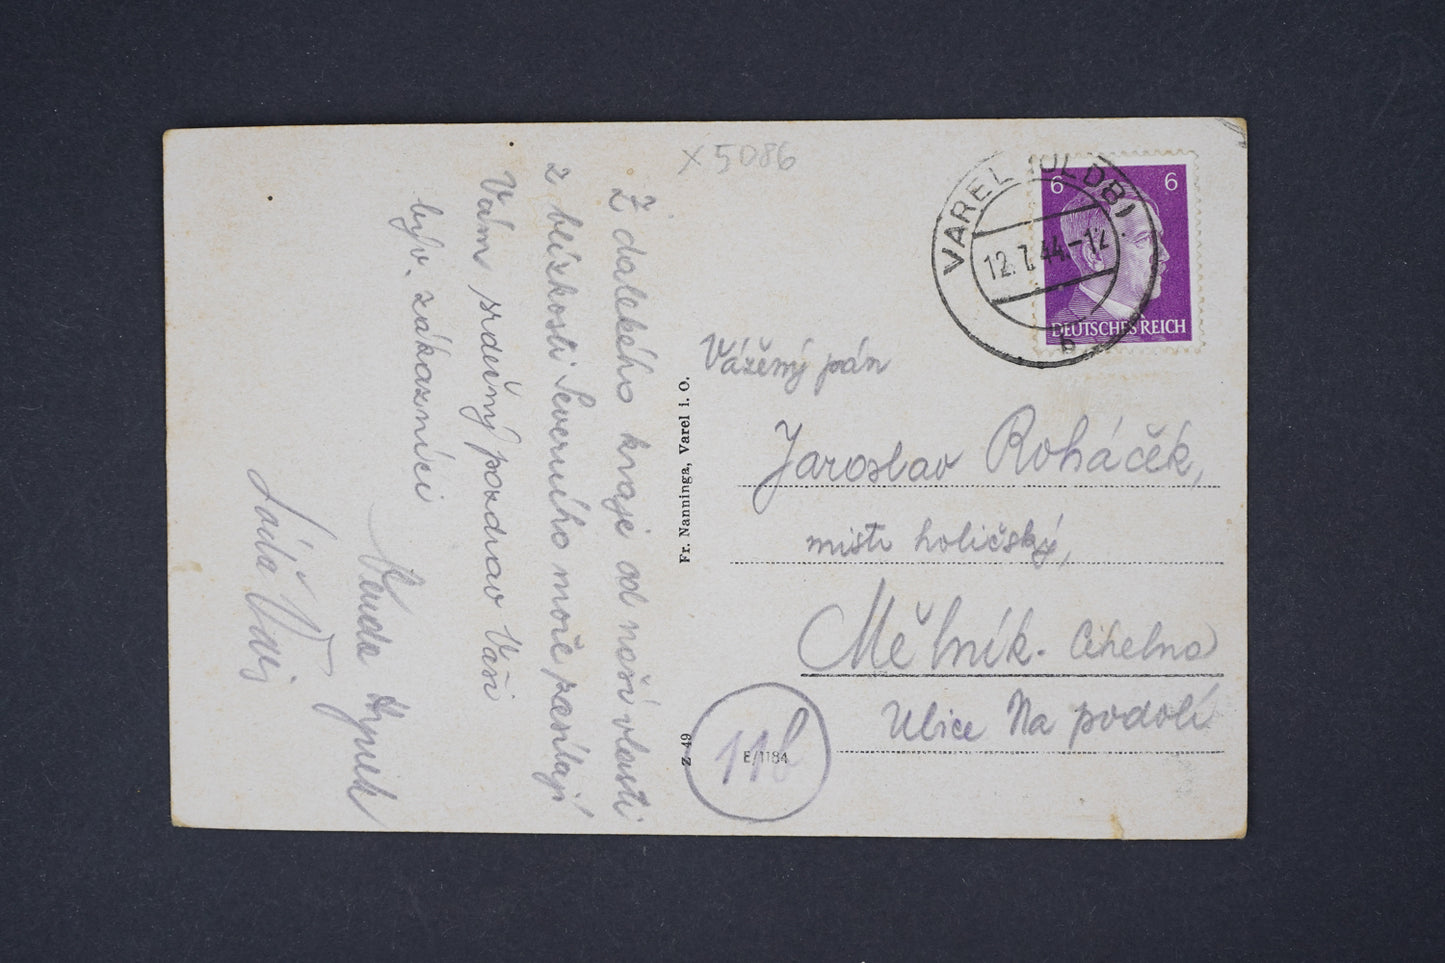 x 5086
Z dalekého kraje od naší vlasti
z blízkosti Severního moře zasílají
Vám srdečný pozdrav Vaši
býv. zákazníci
Hynek
Láda
Fr. Nanninga, Varel i. O.
Z 49
VAREL (OLDB)
12.7.44.-12
b
6 6
DEUTSCHES REICH
Vážený pán
Jaroslav Roháček,
mistr holičský,
Mělník. Cihelna
Ulice Na podolí
11b
E/1184